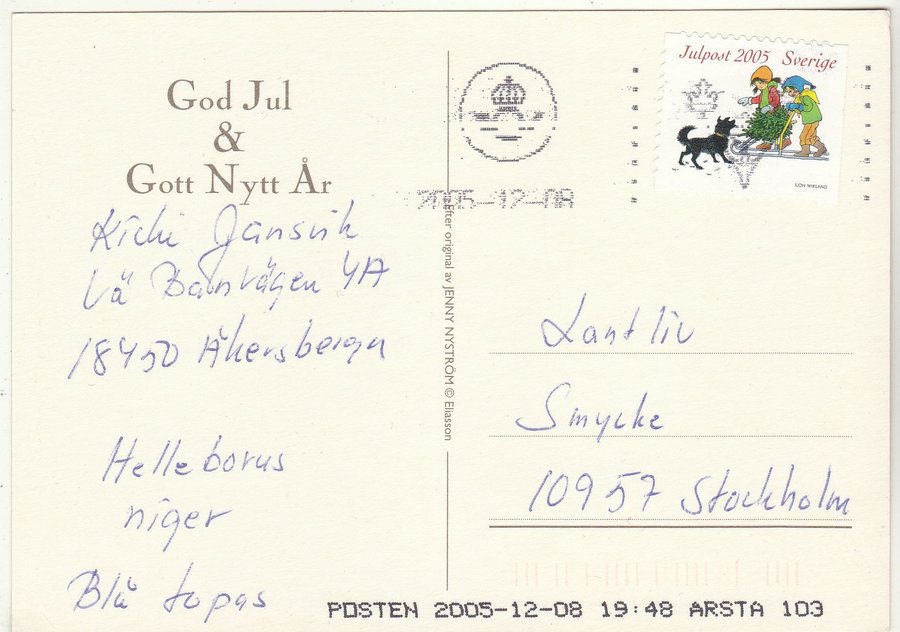 God Jul
&
Gott Nytt År
Kicki Jansvik
Lä Banvägen 4A
18450 Åkersberga
Helleborus
niger
Blå topas
Efter original av JENNY NYSTRÖM © Eliasson
Julpost 2005 Sverige
ILON WIKLAND
2005-12-08
Lantliv
Smycke
10957 Stockholm
POSTEN 2005-12-08 19:48 ARSTA 103